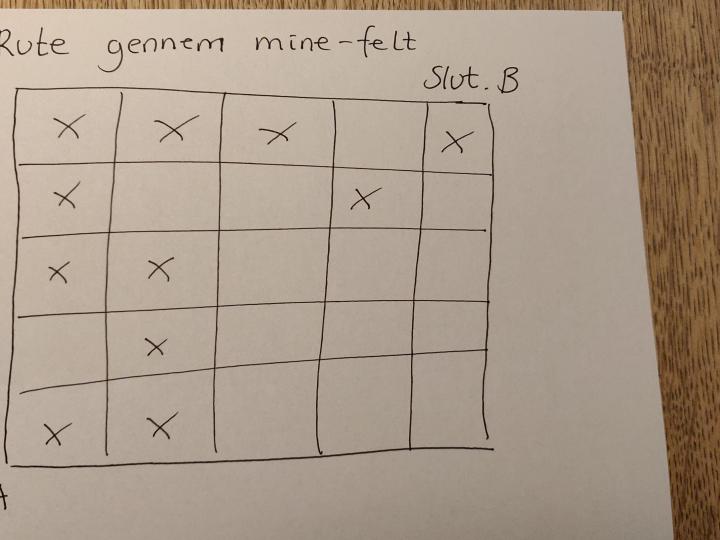 Rute gennem mine-felt
Slut. B
X X X X
X X
X X
X
X X
A